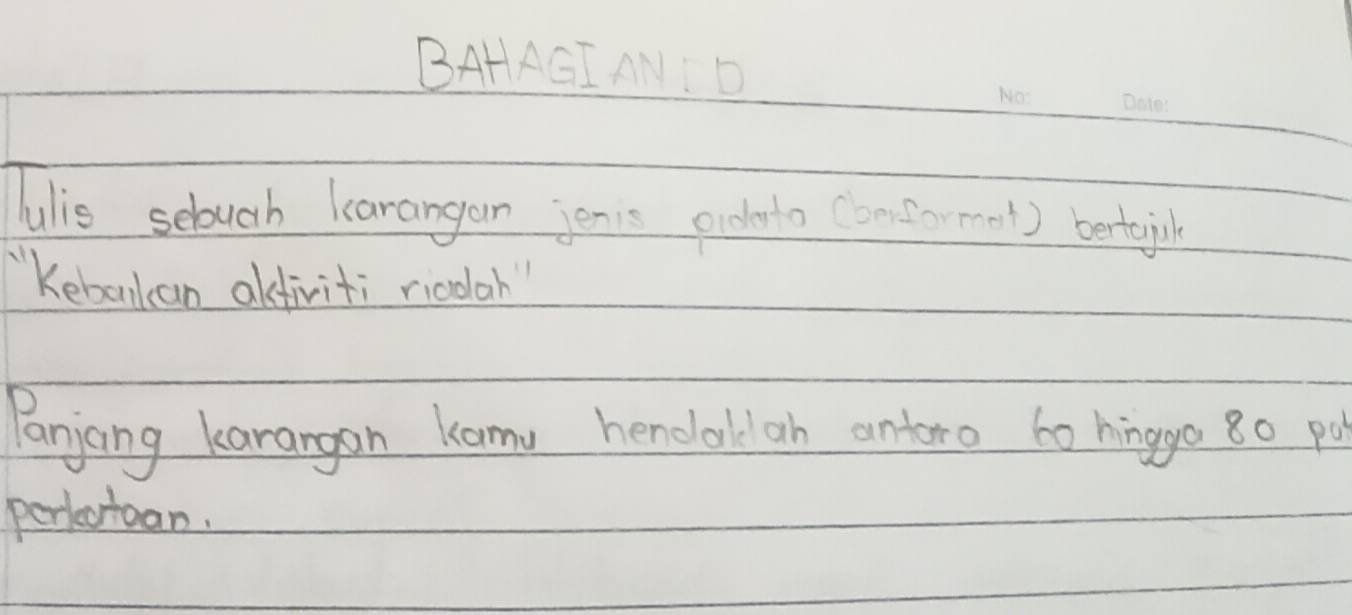 BAHAGIAN : D
No: Date:
Tulis sebuah karangan jenis pidato (berformat) bertajuk
"Kebaikan aktiviti riadah"
Panjang karangan kamu hendaklah antara 60 hingga 80 pat
perkataan.